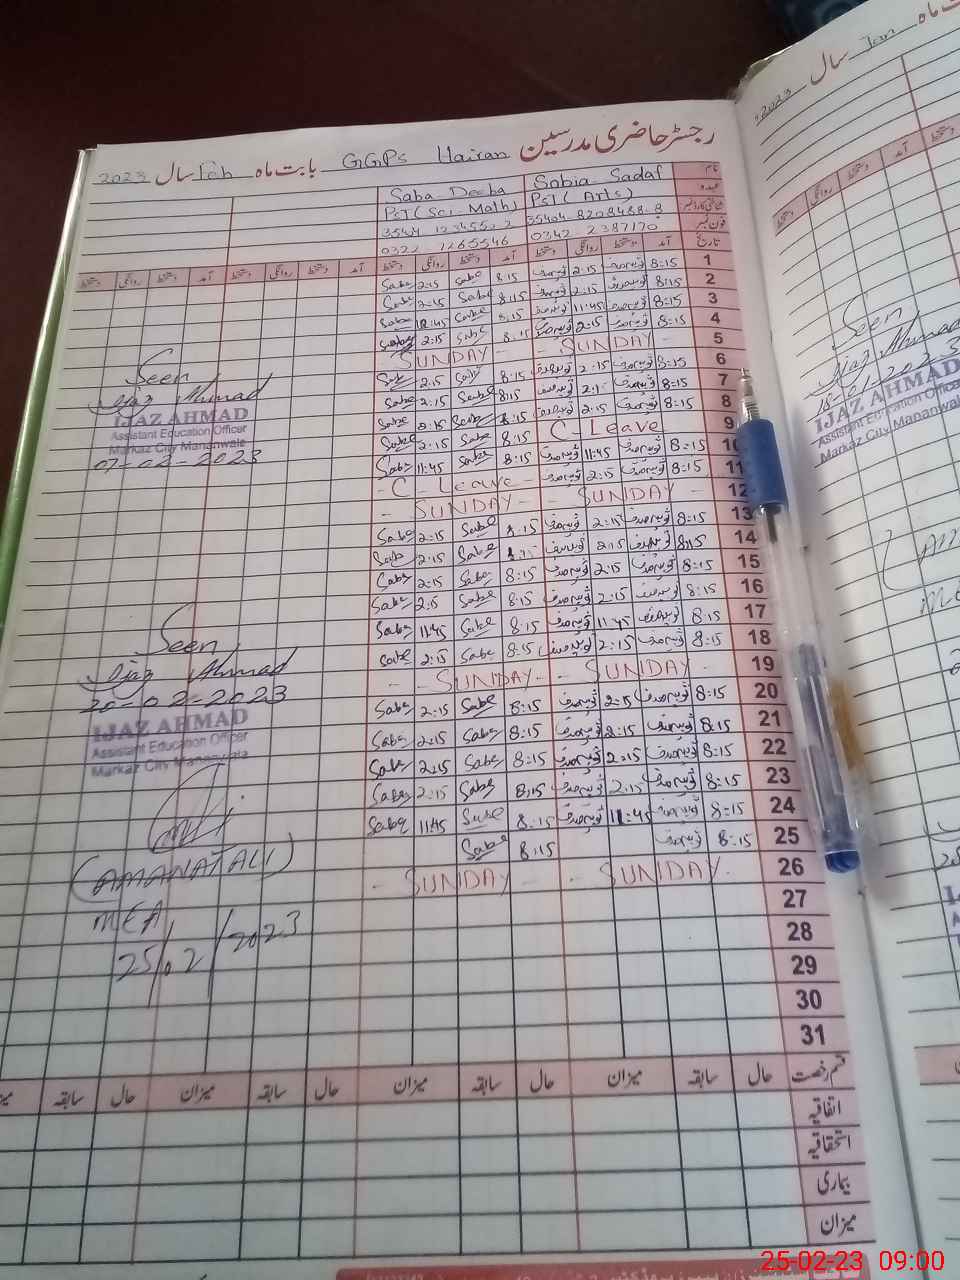 رجسٹر حاضری مدرسین GGPS Hairan بابت ماہ Feb سال 2023
نام Sobia Sadaf Saba Deeba
عہدہ PST (Arts) PST (Sci-Math)
شناختی کارڈ نمبر 35404-8208488-8
فون نمبر 0342 2387170 0322 7265546
تاریخ آمد دستخط روانگی دستخط آمد دستخط روانگی دستخط آمد دستخط روانگی دستخط آمد دستخط روانگی دستخط
1 8:15 ثوبیہ صدف 2:15 ثوبیہ صدف 8:15 Saba 2:15 Saba
2 8:15 ثوبیہ صدف 2:15 ثوبیہ صدف 8:15 Saba 2:15 Saba
3 8:15 ثوبیہ صدف 11:45 ثوبیہ صدف 8:15 Saba Saba
4 8:15 ثوبیہ صدف 2:15 ثوبیہ صدف 8:15 Saba 2:15 Saba
5 - SUNDAY - - SUNDAY -
6 8:15 ثوبیہ صدف 2:15 ثوبیہ صدف 8:15 Saba 2:15 Saba
7 8:15 ثوبیہ صدف ثوبیہ صدف 8:15 Saba 2:15 Saba
8 8:15 ثوبیہ صدف 2:15 ثوبیہ صدف 8:15 Saba 2:15 Saba
9 C - Leave 8:15 Saba 2:15 Saba
10 8:15 ثوبیہ صدف 11:45 ثوبیہ صدف 8:15 Saba 11:45 Saba
11 8:15 ثوبیہ صدف 2:15 ثوبیہ صدف - C - Leave -
12 - SUNDAY - - SUNDAY -
13 8:15 ثوبیہ صدف 2:15 ثوبیہ صدف 8:15 Saba 2:15 Saba
14 8:15 ثوبیہ صدف 2:15 ثوبیہ صدف Saba 2:15 Saba
15 8:15 ثوبیہ صدف 2:15 ثوبیہ صدف 8:15 Saba 2:15 Saba
16 8:15 ثوبیہ صدف 2:15 ثوبیہ صدف 8:15 Saba 2:15 Saba
17 8:15 ثوبیہ صدف 11:45 ثوبیہ صدف 8:15 Saba 11:45 Saba
18 8:15 ثوبیہ صدف 2:15 ثوبیہ صدف 8:15 Saba 2:15 Saba
19 - SUNDAY - - SUNDAY - -
20 8:15 ثوبیہ صدف 2:15 ثوبیہ صدف 8:15 Saba 2:15 Saba
21 8:15 ثوبیہ صدف 8:15 ثوبیہ صدف 8:15 Saba 2:15 Saba
22 8:15 ثوبیہ صدف 2:15 ثوبیہ صدف 8:15 Saba 2:15 Saba
23 8:15 ثوبیہ صدف 2:15 ثوبیہ صدف 8:15 Saba 2:15 Saba
24 8:15 ثوبیہ صدف 11:45 ثوبیہ صدف 8:15 Saba 11:45 Saba
25 8:15 ثوبیہ صدف 8:15 Saba
26 - SUNDAY - - SUNDAY -
27
28
29
30
31
Seen
Ijaz Ahmad
IJAZ AHMAD
Assistant Education Officer
Markaz City Mananwala
07-02-2023
Seen
Ijaz Ahmad
20-02-2023
IJAZ AHMAD
Assistant Education Officer
Markaz City Mananwala
(AMANAT ALI)
MEA
25/02/2023
قسم رخصت حال سابقہ میزان حال سابقہ میزان حال سابقہ میزان حال سابقہ
اتفاقیہ
استحقاقیہ
بیماری
میزان
ماہ Jan سال 2023
دستخط روانگی دستخط آمد
Seen
Ijaz Ahmad
IJAZ AHMAD
Assistant Education Officer
Markaz City Mananwala
25-02-23 09:00